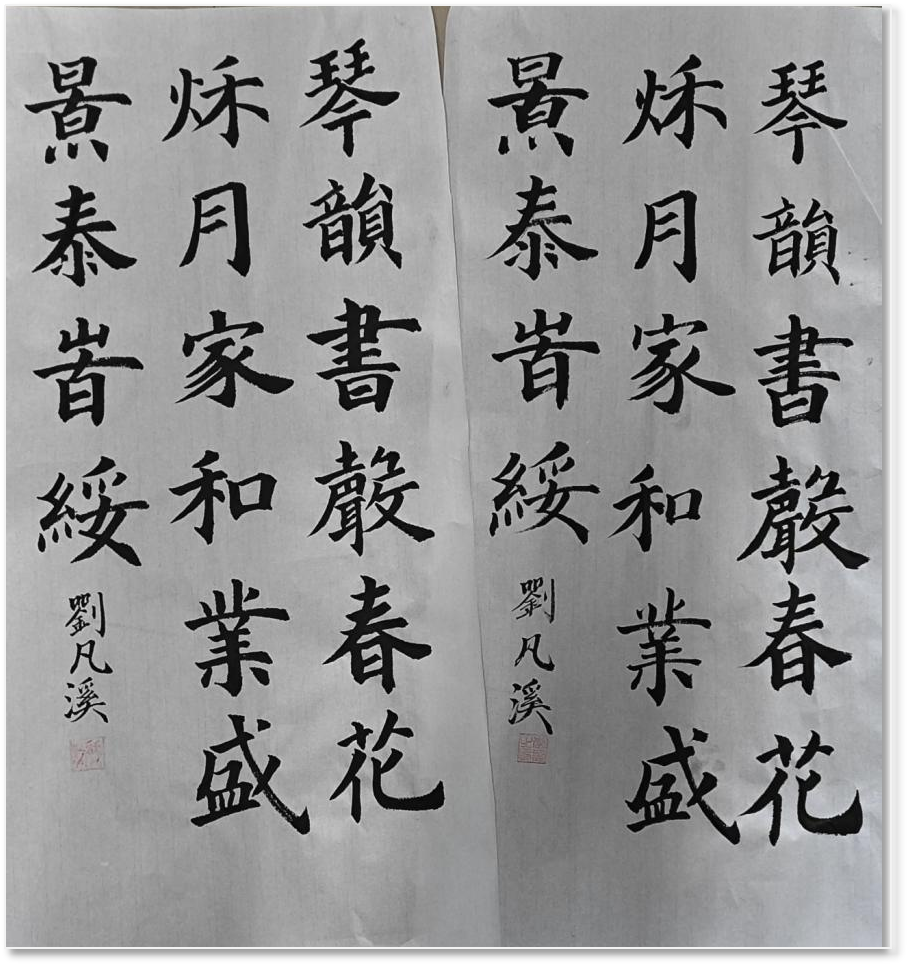 琴韻書聲春花
秌月家和業盛
景泰旹綏 劉凡溪
琴韻書聲春花
秌月家和業盛
景泰旹綏 劉凡溪